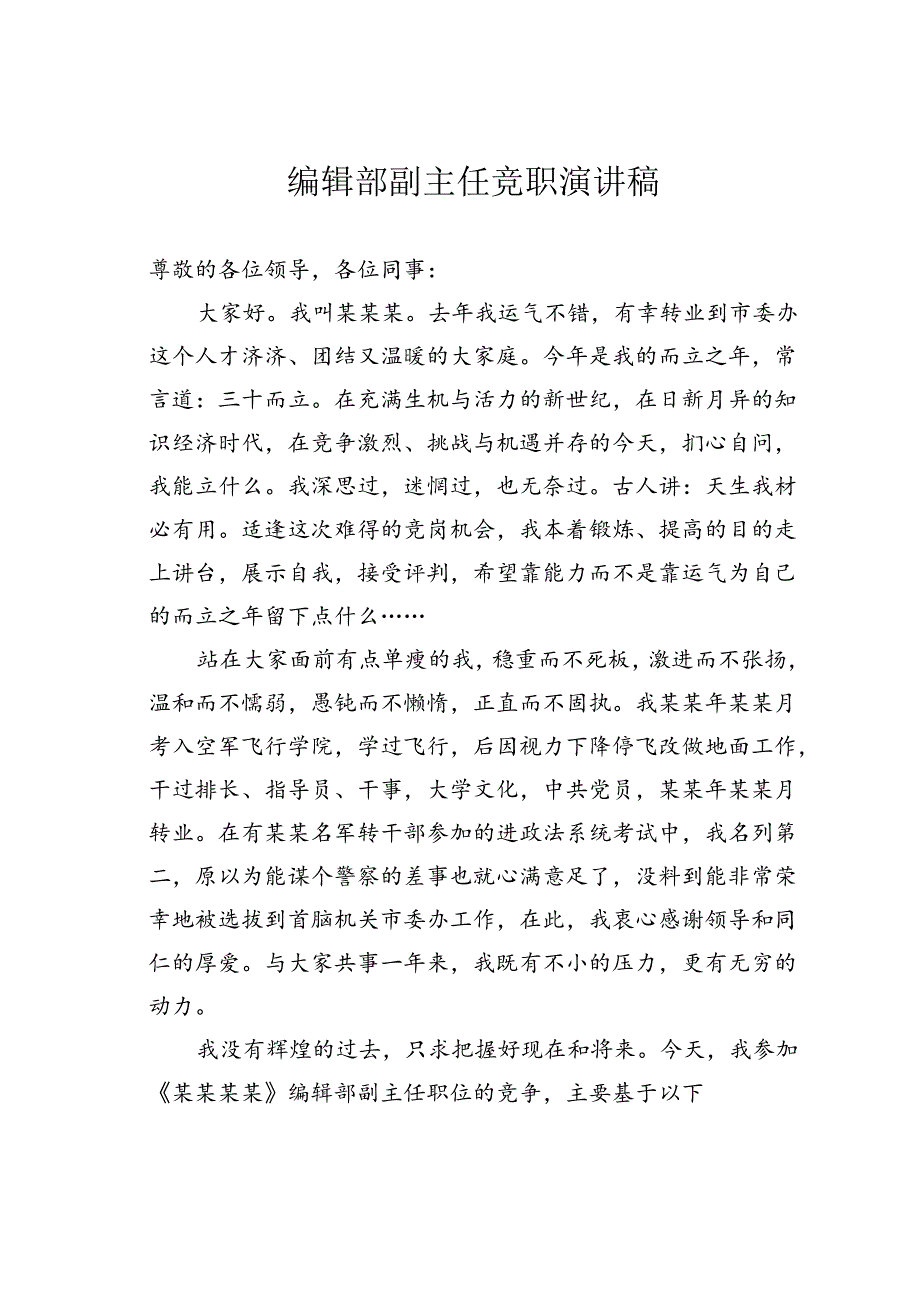 编辑部副主任竞职演讲稿
尊敬的各位领导，各位同事：
大家好。我叫某某某。去年我运气不错，有幸转业到市委办
这个人才济济、团结又温暖的大家庭。今年是我的而立之年，常
言道：三十而立。在充满生机与活力的新世纪，在日新月异的知
识经济时代，在竞争激烈、挑战与机遇并存的今天，扪心自问，
我能立什么。我深思过，迷惘过，也无奈过。古人讲：天生我材
必有用。适逢这次难得的竞岗机会，我本着锻炼、提高的目的走
上讲台，展示自我，接受评判，希望靠能力而不是靠运气为自己
的而立之年留下点什么……
站在大家面前有点单瘦的我，稳重而不死板，激进而不张扬，
温和而不懦弱，愚钝而不懒惰，正直而不固执。我某某年某某月
考入空军飞行学院，学过飞行，后因视力下降停飞改做地面工作，
干过排长、指导员、干事，大学文化，中共党员，某某年某某月
转业。在有某某名军转干部参加的进政法系统考试中，我名列第
二，原以为能谋个警察的差事也就心满意足了，没料到能非常荣
幸地被选拔到首脑机关市委办工作，在此，我衷心感谢领导和同
仁的厚爱。与大家共事一年来，我既有不小的压力，更有无穷的
动力。
我没有辉煌的过去，只求把握好现在和将来。今天，我参加
《某某某某》编辑部副主任职位的竞争，主要基于以下